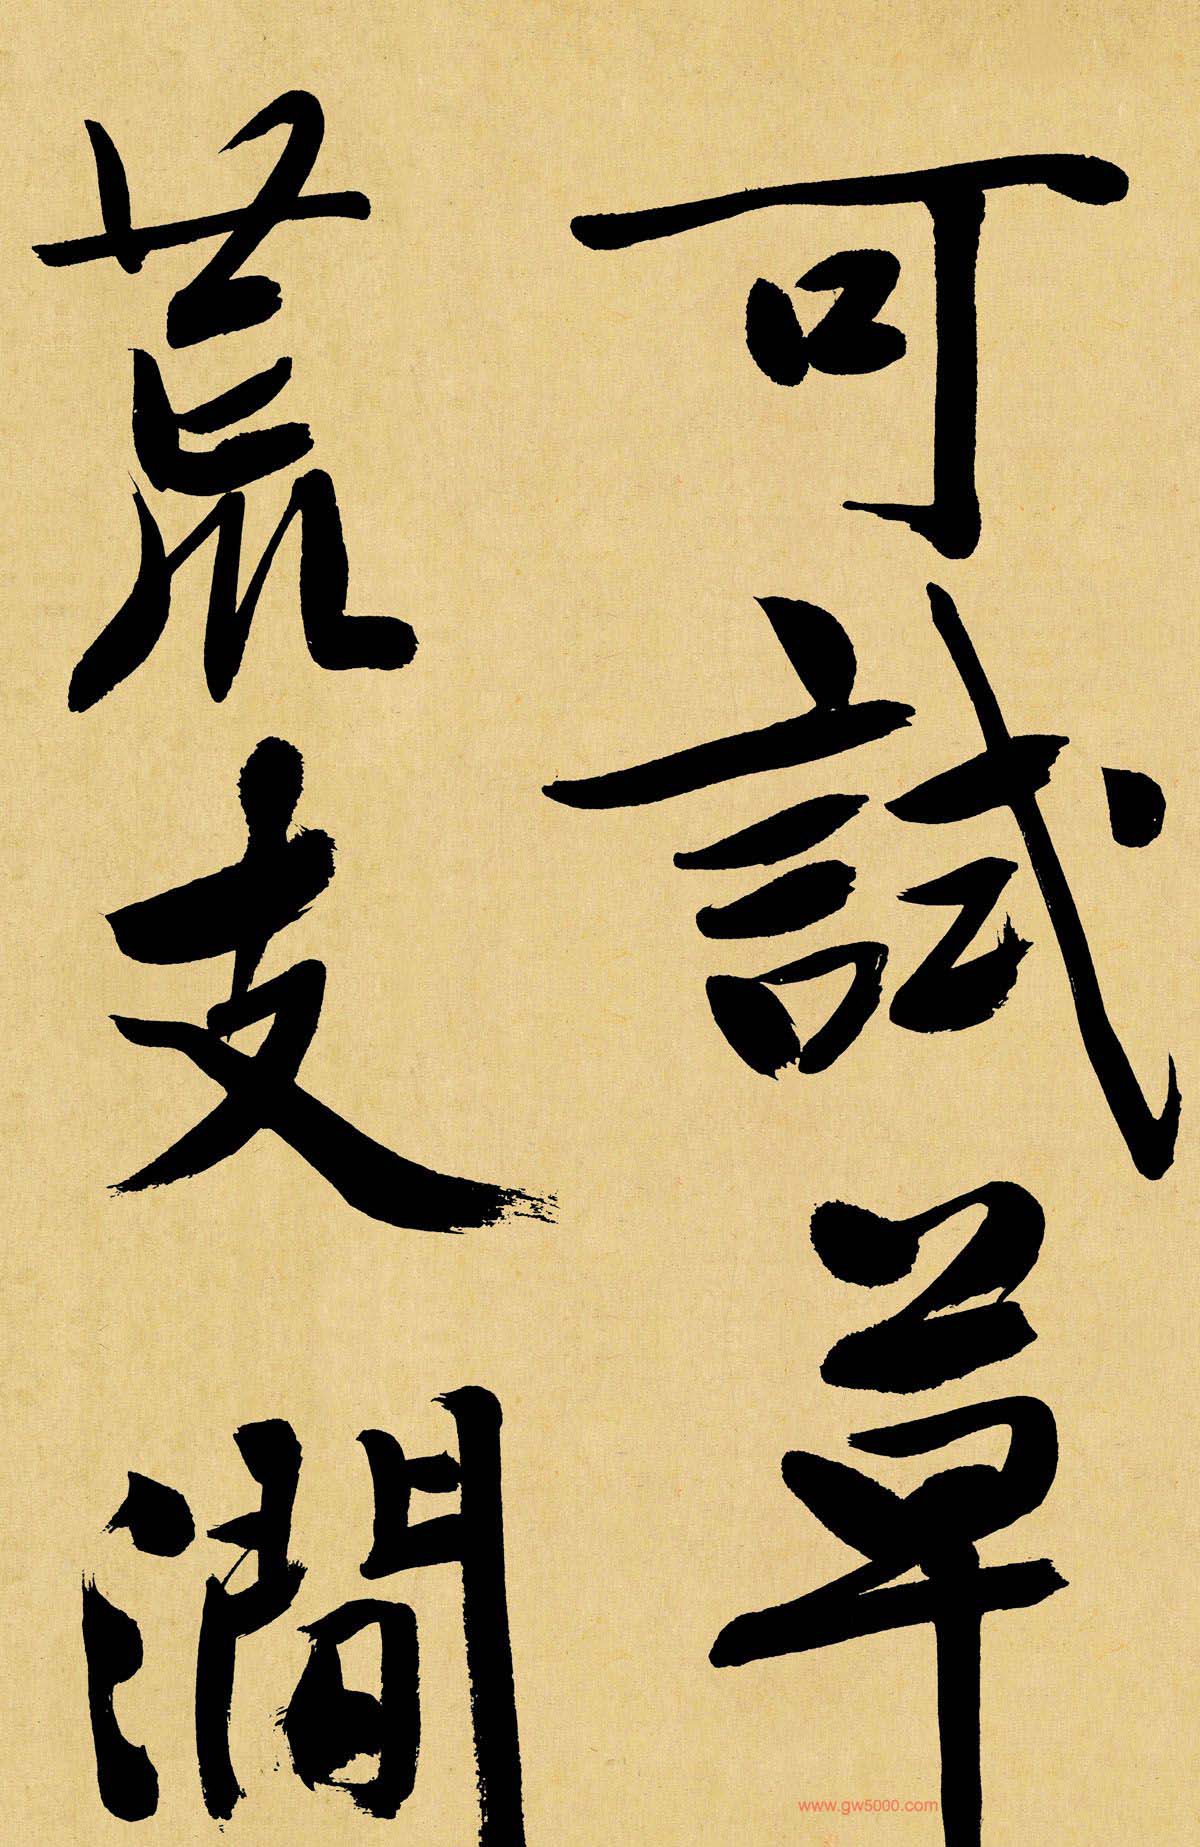 可試草
荒支澗
www.gw5000.com